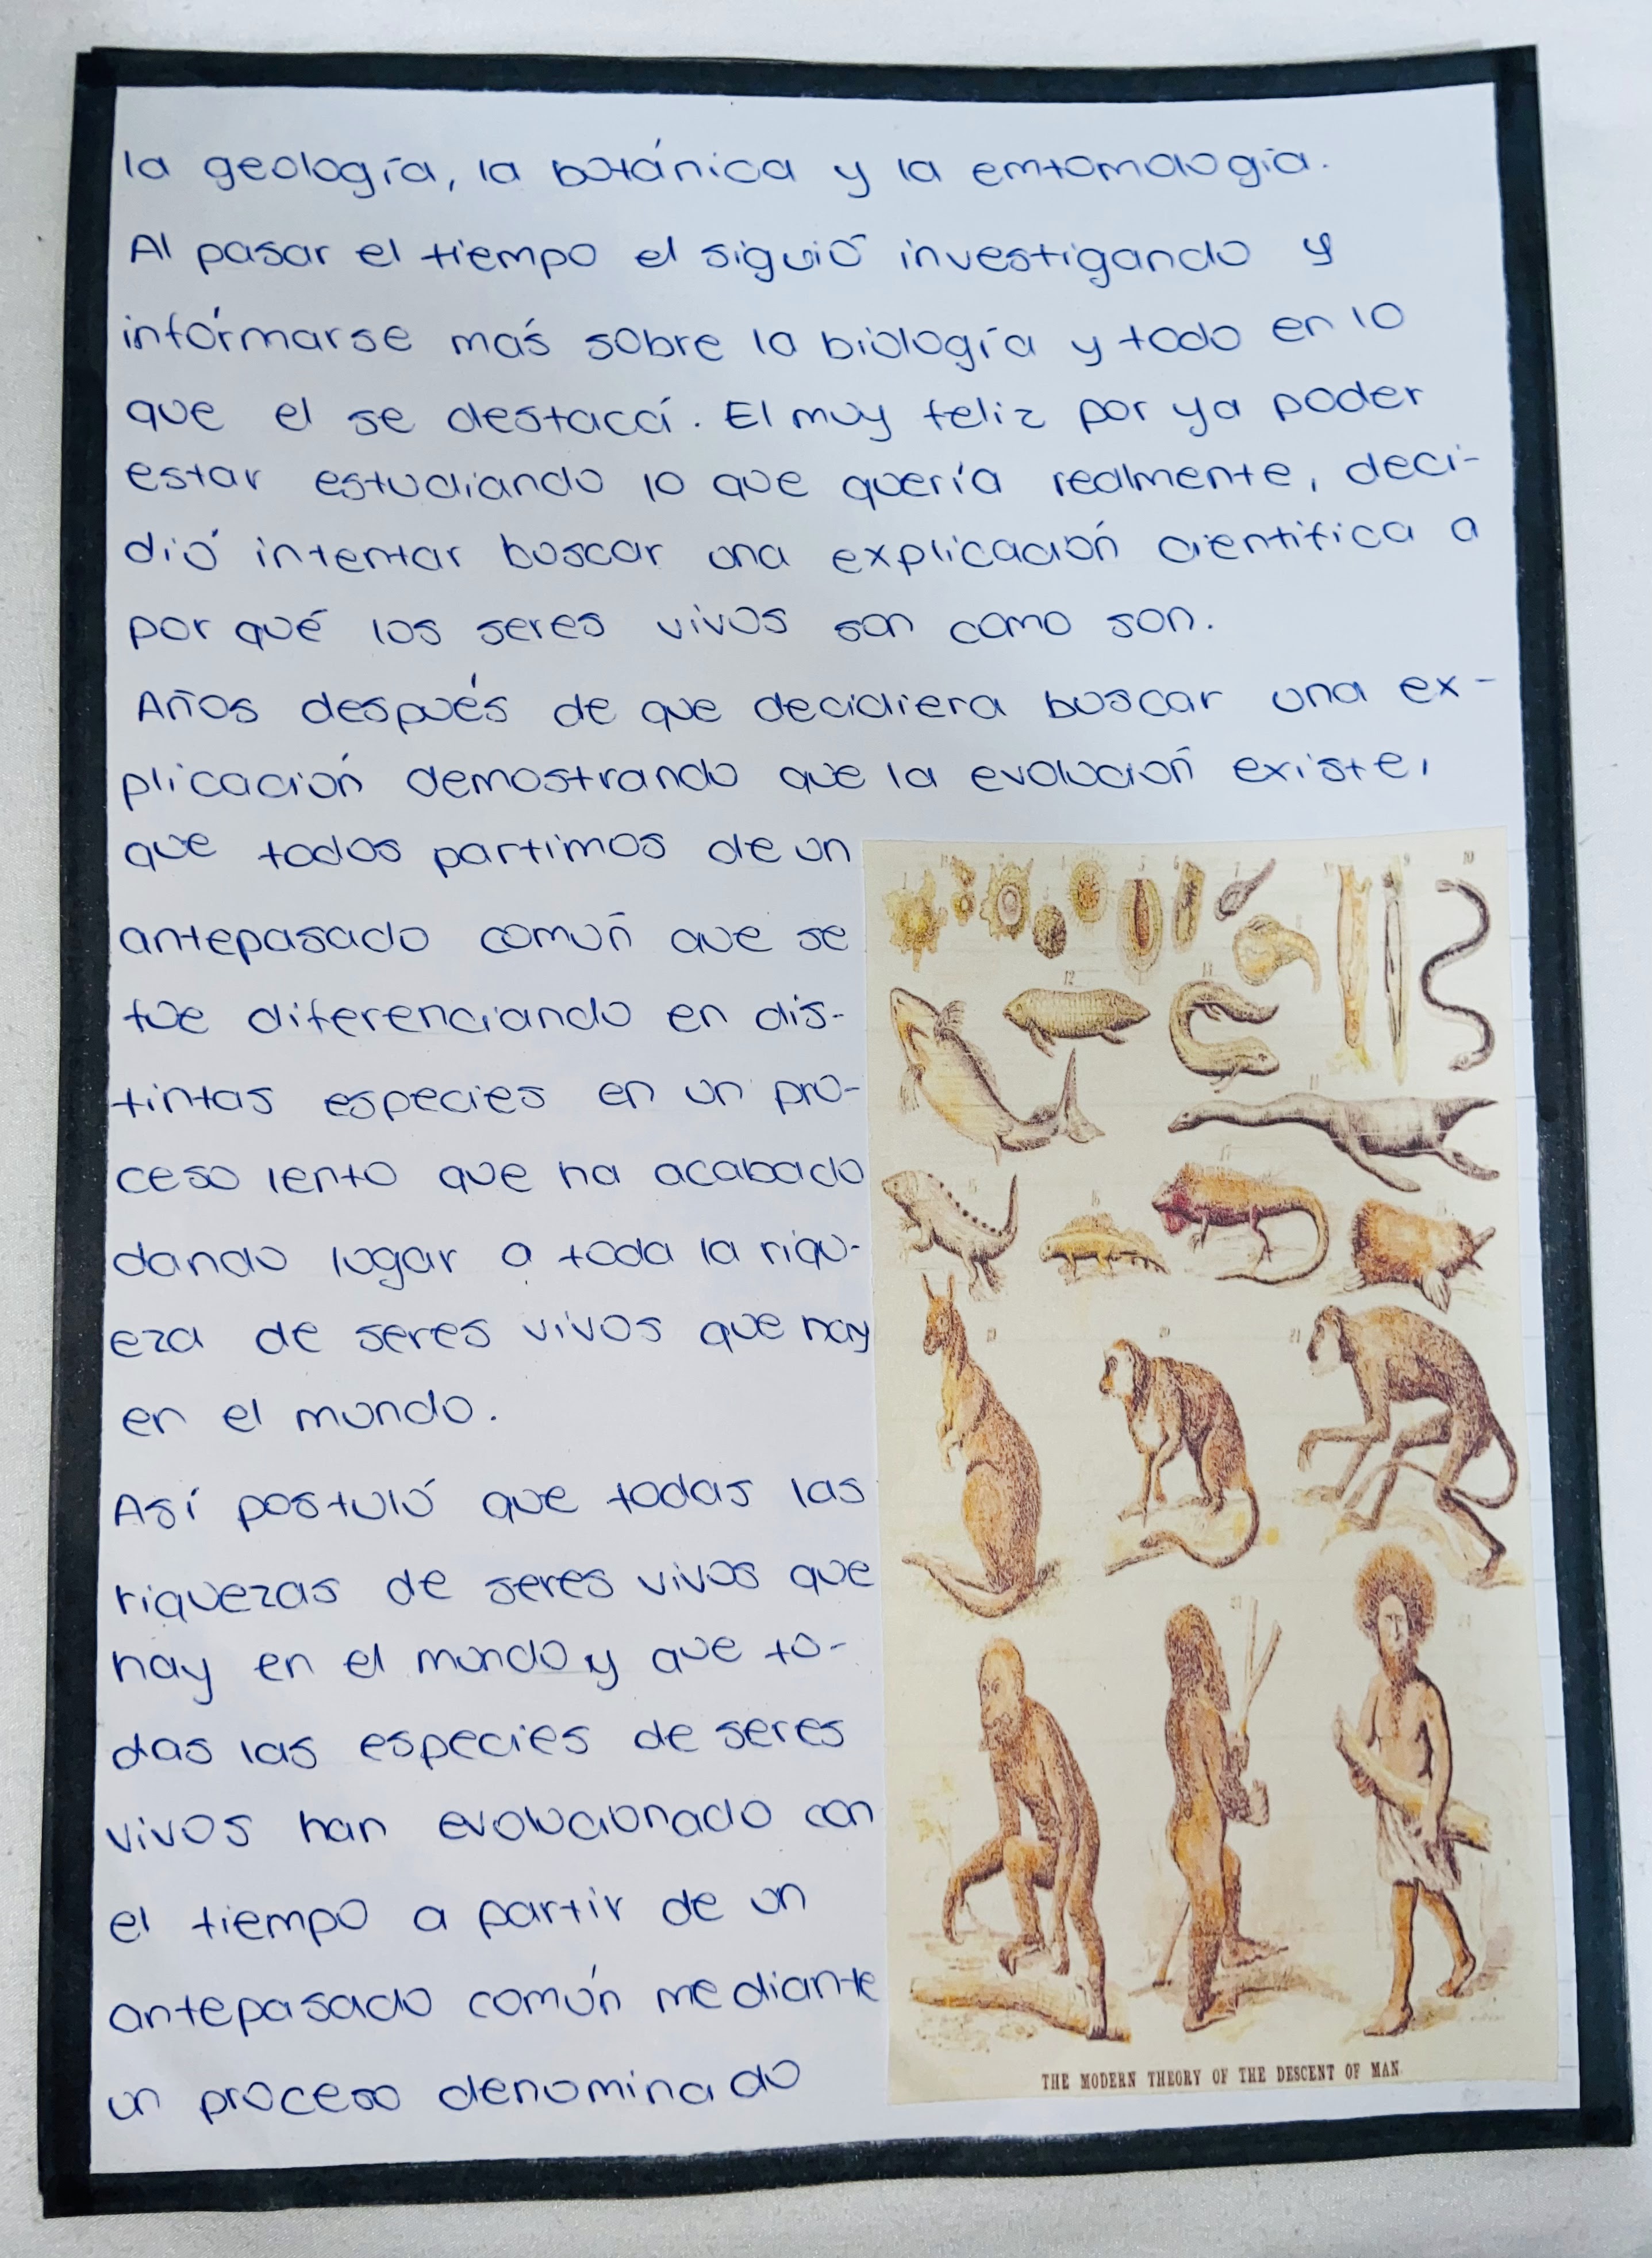 la geología, la botánica y la emtomología.
Al pasar el tiempo el siguió investigando y
infórmarse más sobre la biología y todo en lo
que el se destaca. El muy feliz por ya poder
estar estudiando lo que quería realmente, deci-
dió intentar buscar una explicación cientifica a
por qué los seres vivos son como son.
Años después de que decidiera buscar una ex-
plicación demostrando que la evolución existe,
que todos partimos de un
antepasado común que se
fue diferenciando en dis-
tintas especies en un pro-
ceso lento que ha acabado
dando lugar a toda la riqu-
eza de seres vivos que hay
en el mundo.
Así postuló que todas las
riquezas de seres vivos que
hay en el mundo y que to-
das las especies de seres
vivos han evolucionado con
el tiempo a partir de un
antepasado común mediante
un proceso denominado
THE MODERN THEORY OF THE DESCENT OF MAN.